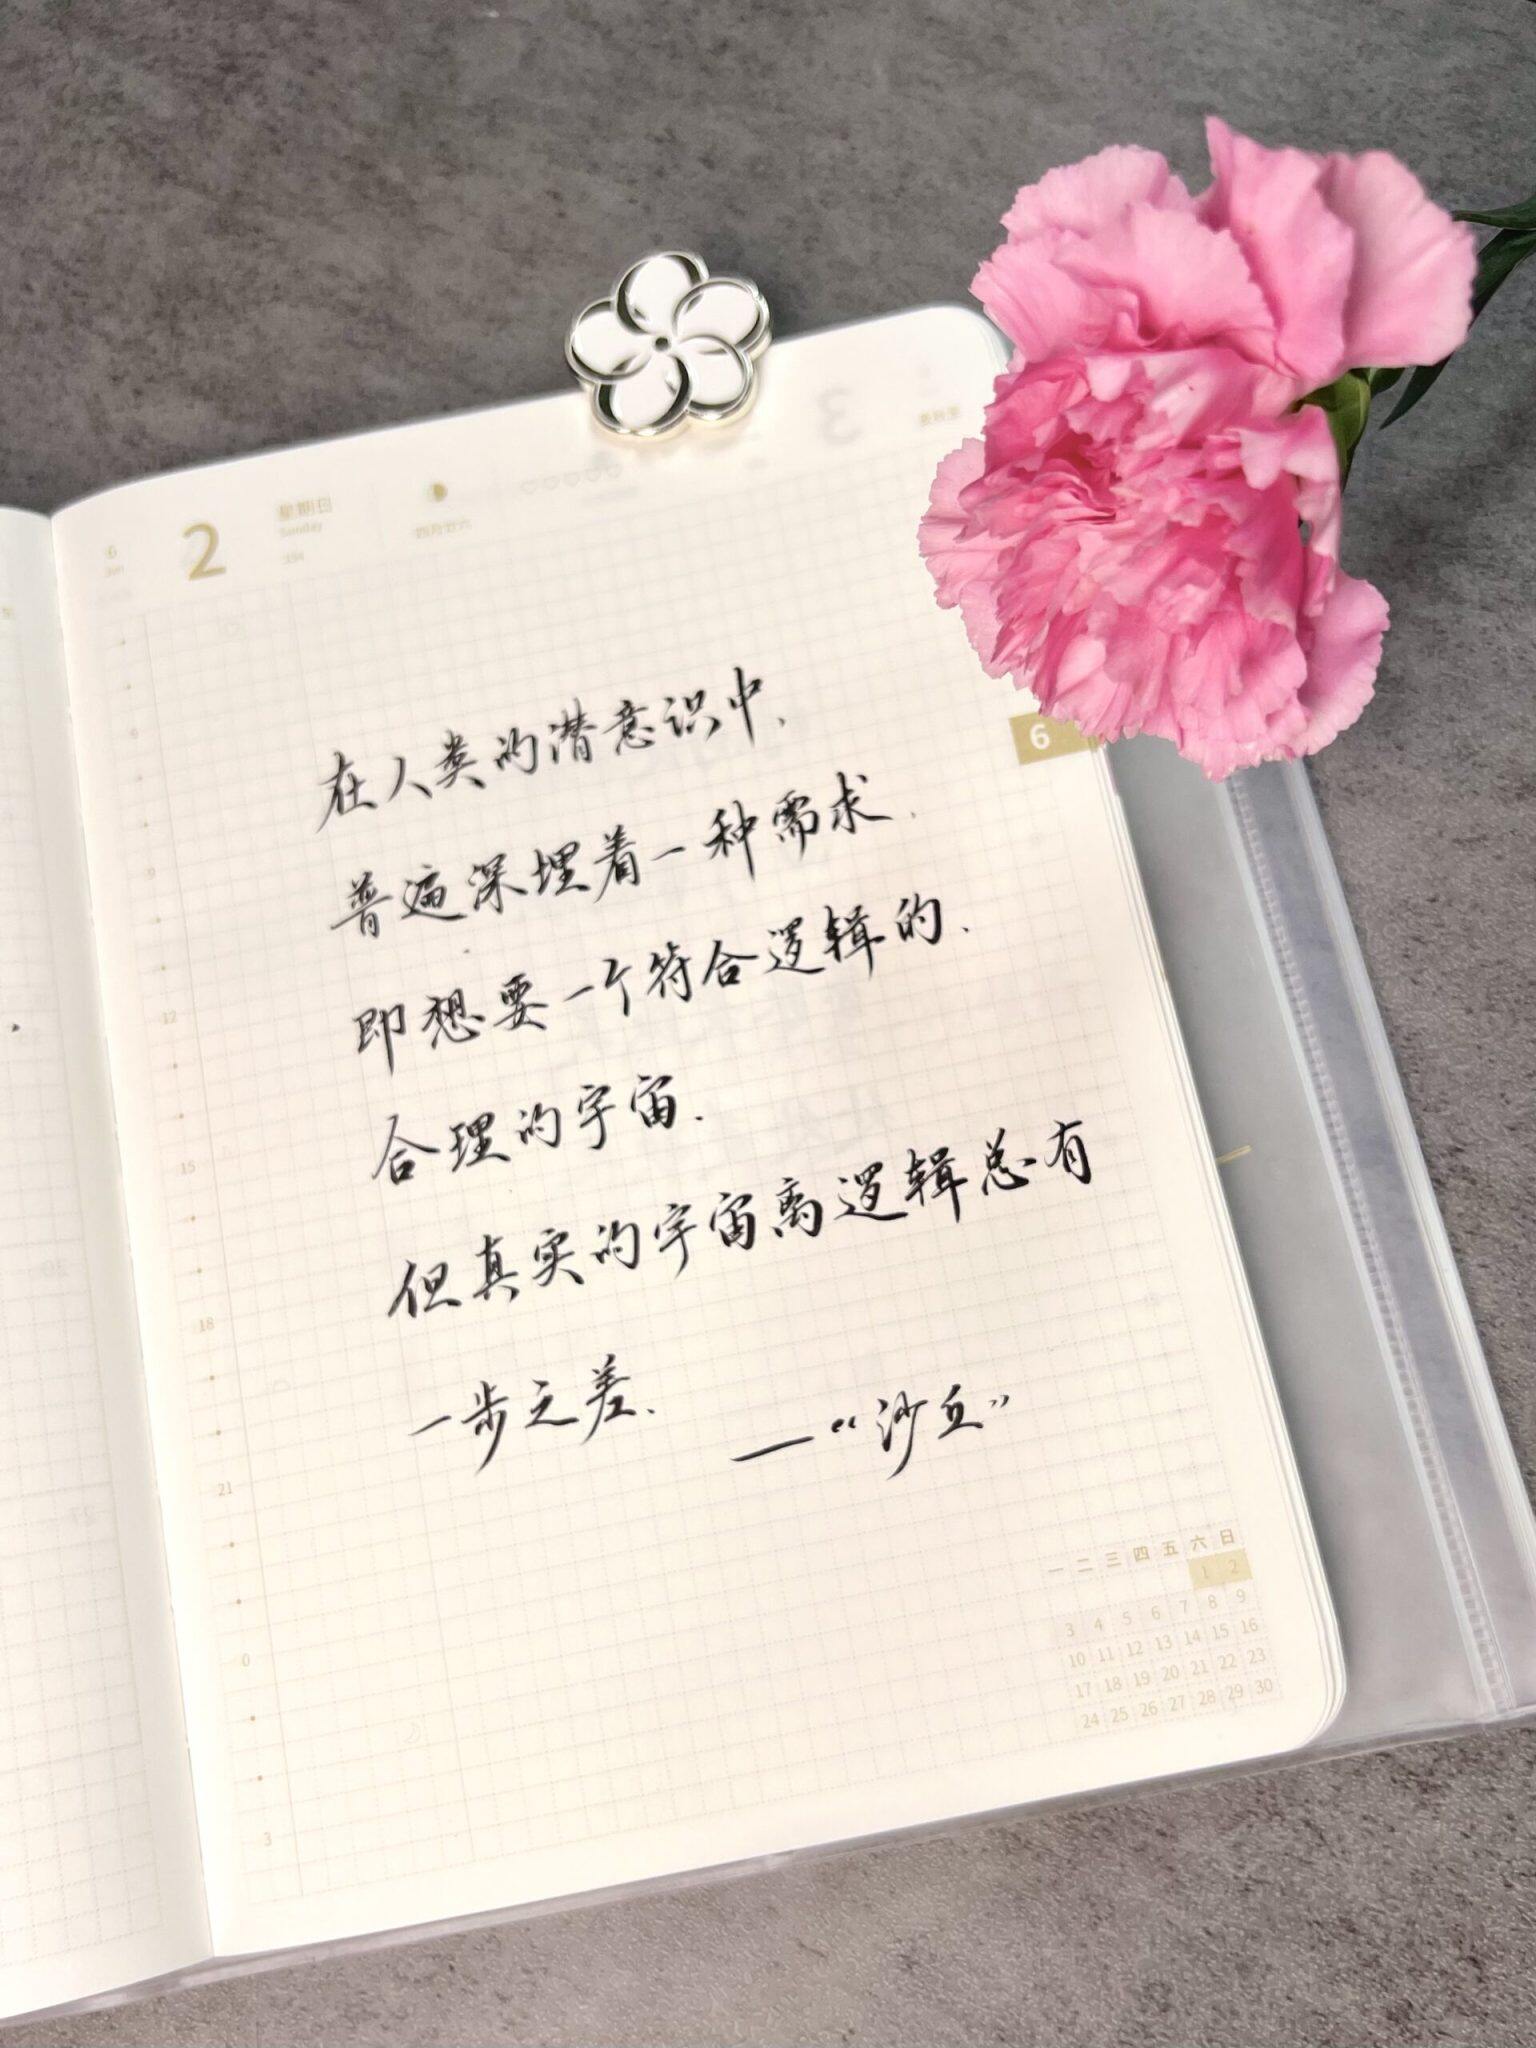 6
Jun
2
星期日
Sunday
四月廿六
3
在人类的潜意识中.
普遍深埋着一种需求.
即想要一个符合逻辑的.
合理的宇宙.
但真实的宇宙离逻辑总有
一步之差.
—“沙丘”
6
6
9
12
15
18
21
0
3
一 二 三 四 五 六 日
1 2
3 4 5 6 7 8 9
10 11 12 13 14 15 16
17 18 19 20 21 22 23
24 25 26 27 28 29 30